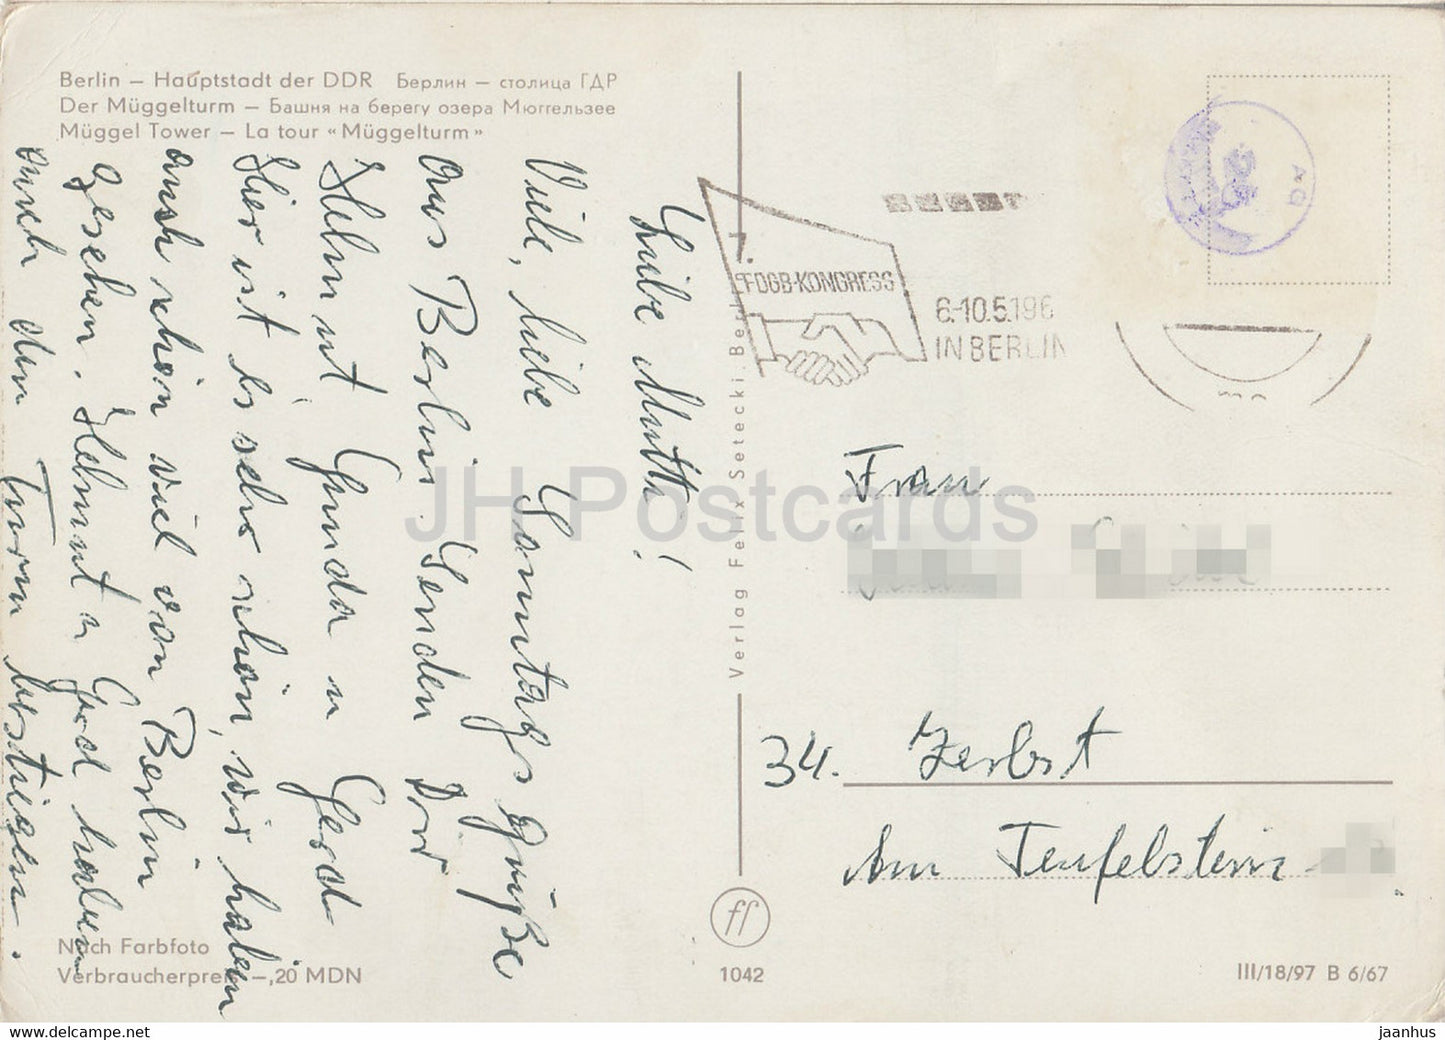 Berlin – Hauptstadt der DDR Берлин – столица ГДР
Der Müggelturm – Башня на берегу озера Мюггельзее
Müggel Tower – La tour «Müggelturm»
Liebe Mutti!
Viele, liebe Sonntagsgrüße
aus Berlin senden Dir
Helmut Gunda u Gerd
Hier ist es sehr schön, wir haben
auch schon viel von Berlin
gesehen. Helmut u Gerd haben
auch den Turm bestiegen.
Nach Farbfoto
Verbraucherpreis –,20 MDN
Verlag Felix Setecki, Berlin
7.
FDGB-KONGRESS
6.-10.5.196
IN BERLIN
Frau
34. Zerbst
Am Teufelstein
ff
1042
III/18/97 B 6/67
JH Postcards
www.delcampe.net
jaanhus